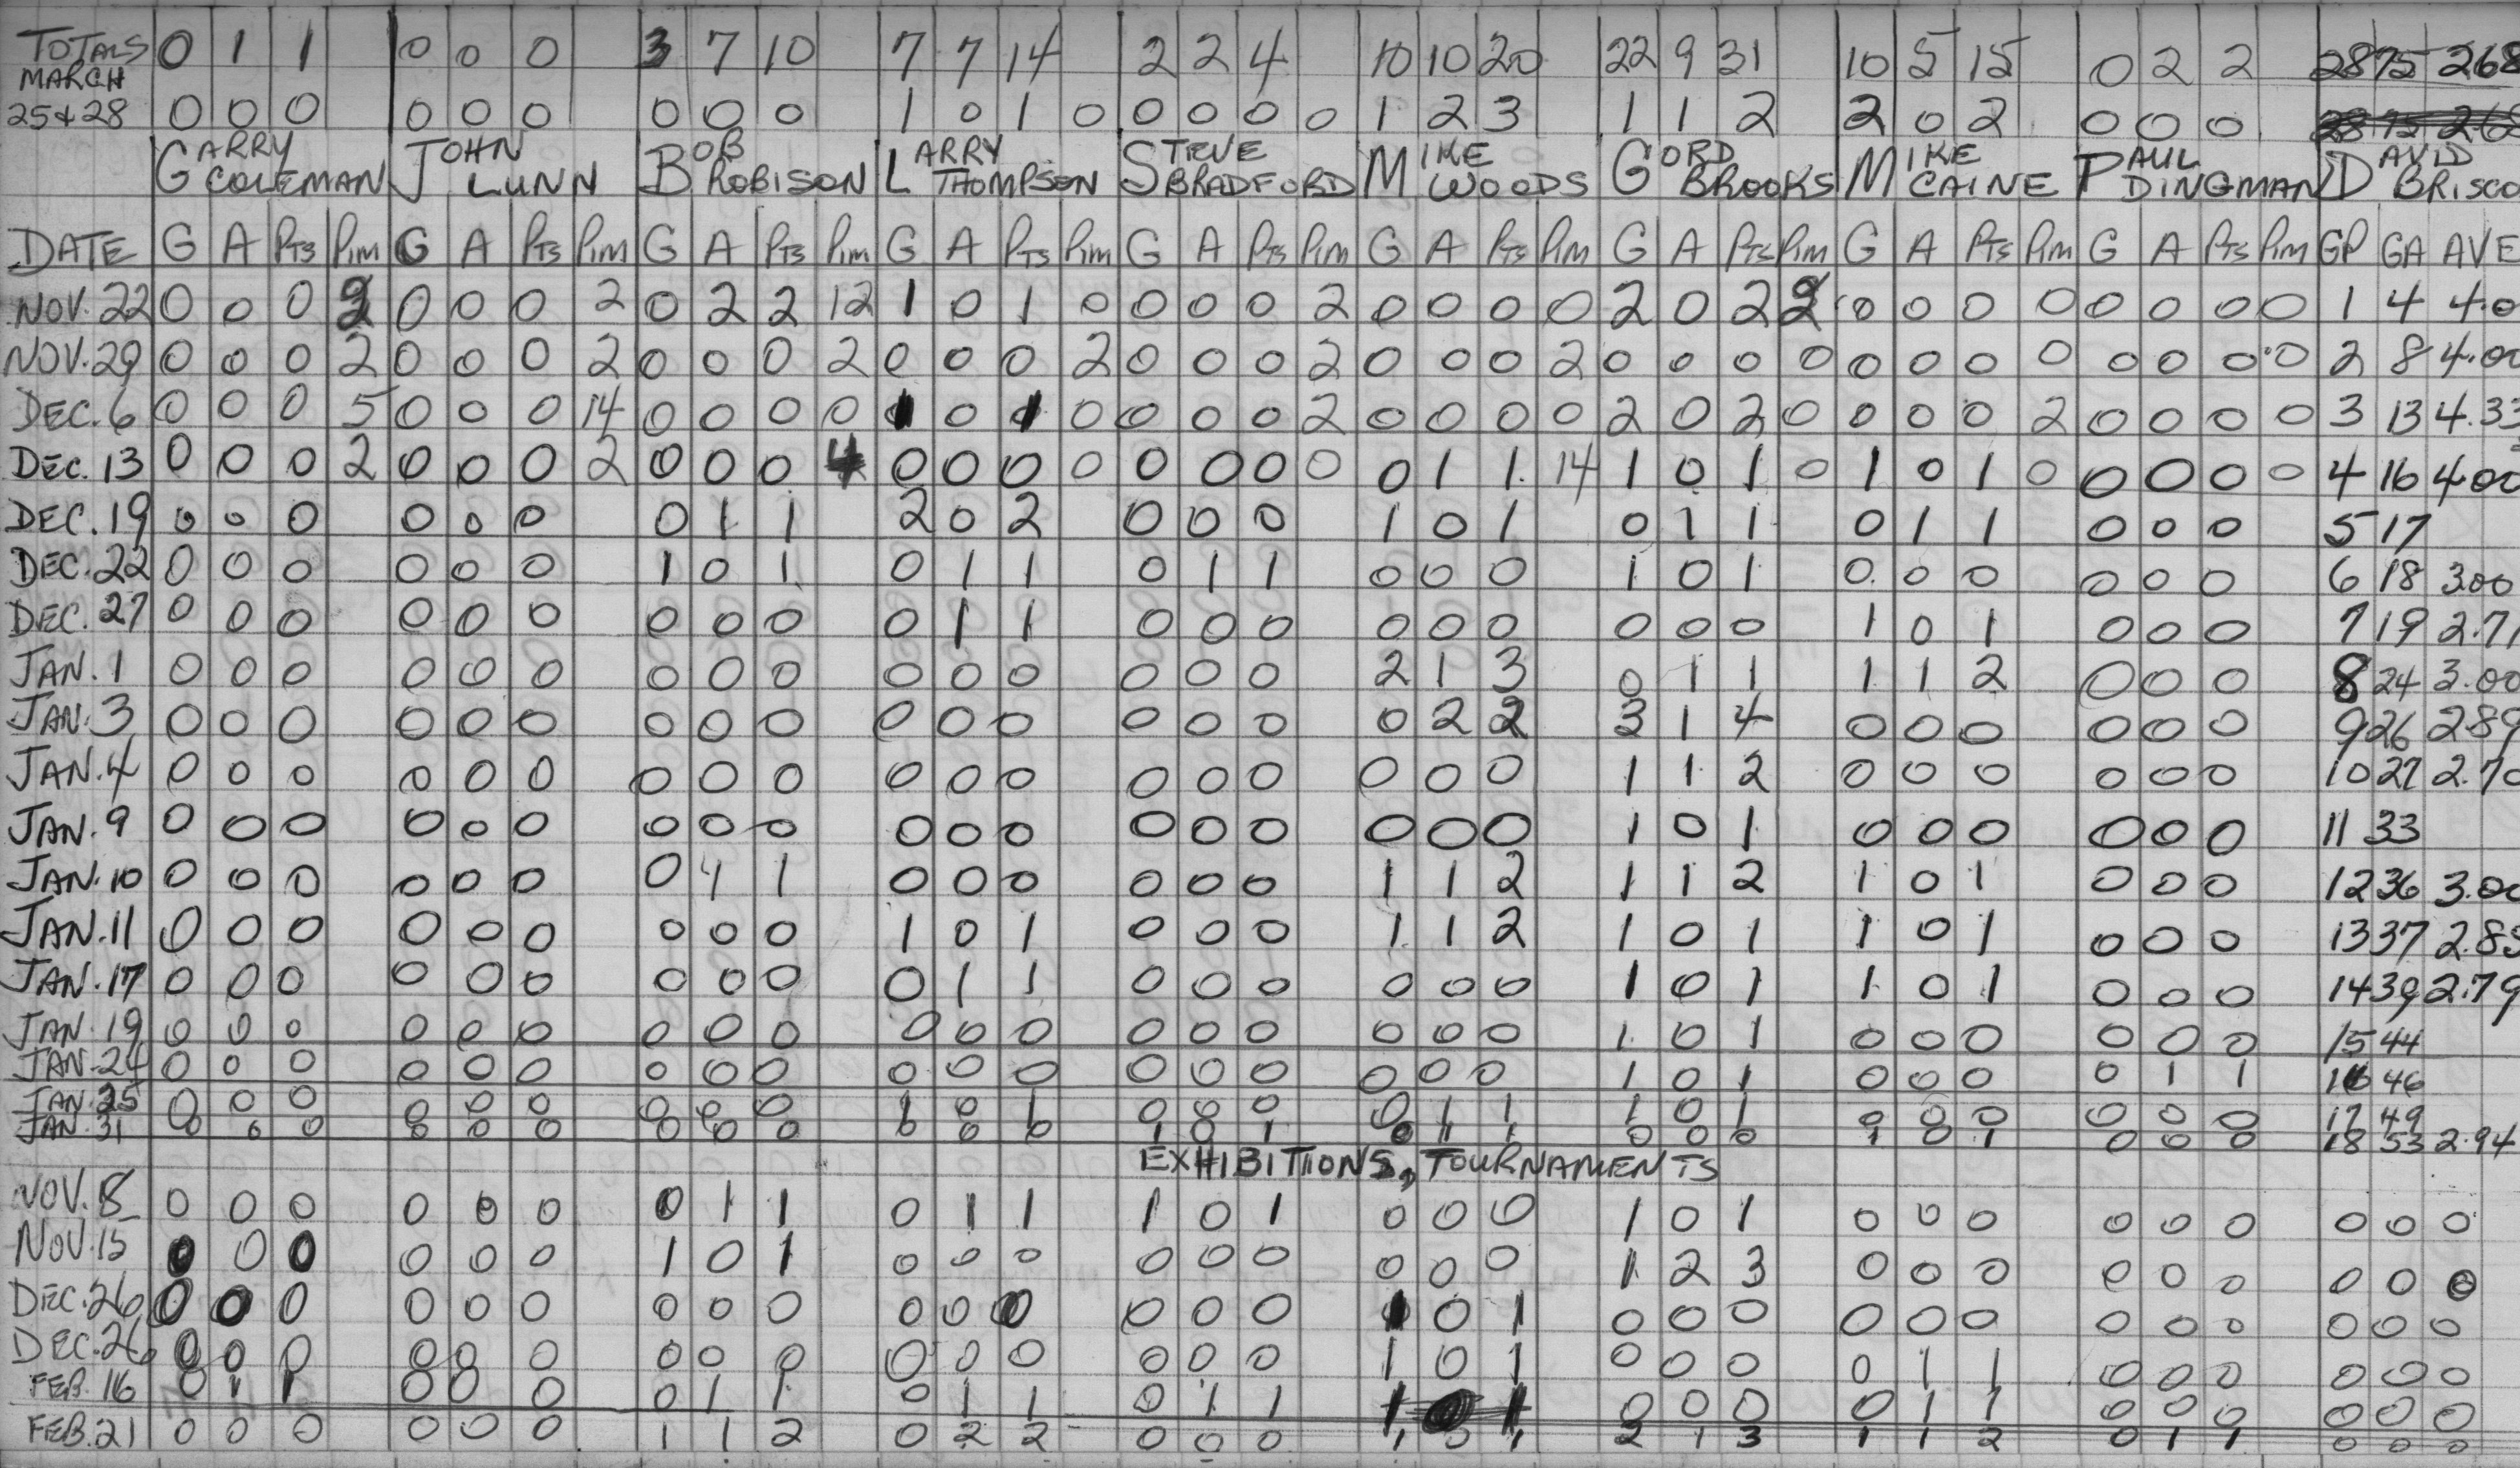 TOTALS 0 1 1 0 0 0 3 7 10 7 7 14 2 2 4 10 10 20 22 9 31 10 5 15 0 2 2 28 75 268
MARCH
25&28 0 0 0 0 0 0 0 0 0 1 0 1 0 0 0 0 0 1 2 3 1 1 2 2 0 2 0 0 0
GARRY JOHN BOB LARRY STEVE MIKE GORD MIKE PAUL DAVID
COLEMAN LUNN ROBISON THOMPSON BRADFORD WOODS BROOKS CAINE DINGMAN BRISCO
DATE G A PTS PIM G A PTS PIM G A PTS PIM G A PTS PIM G A PTS PIM G A PTS PIM G A PTS PIM G A PTS PIM G A PTS PIM GP GA AVE
NOV. 22 0 0 0 2 0 0 0 2 0 2 2 12 1 0 1 0 0 0 0 2 0 0 0 0 2 0 2 2 0 0 0 0 0 0 0 0 1 4 4.0
NOV. 29 0 0 0 2 0 0 0 2 0 0 0 2 0 0 0 2 0 0 0 2 0 0 0 2 0 0 0 0 0 0 0 0 0 0 0 0 2 8 4.00
DEC. 6 0 0 0 5 0 0 0 14 0 0 0 0 1 0 1 0 0 0 0 2 0 0 0 0 2 0 2 0 0 0 0 2 0 0 0 0 3 13 4.33
DEC. 13 0 0 0 2 0 0 0 2 0 0 0 4 0 0 0 0 0 0 0 0 0 1 1 14 1 0 1 0 1 0 1 0 0 0 0 0 4 16 4.00
DEC. 19 0 0 0 0 0 0 0 1 1 2 0 2 0 0 0 1 0 1 0 1 1 0 1 1 0 0 0 5 17
DEC. 22 0 0 0 0 0 0 1 0 1 0 1 1 0 1 1 0 0 0 1 0 1 0 0 0 0 0 0 6 18 3.00
DEC. 27 0 0 0 0 0 0 0 0 0 0 1 1 0 0 0 0 0 0 0 0 0 1 0 1 0 0 0 7 19 2.71
JAN. 1 0 0 0 0 0 0 0 0 0 0 0 0 0 0 0 2 1 3 0 1 1 1 1 2 0 0 0 8 24 3.00
JAN. 3 0 0 0 0 0 0 0 0 0 0 0 0 0 0 0 0 2 2 3 1 4 0 0 0 0 0 0 9 26 2.89
JAN. 4 0 0 0 0 0 0 0 0 0 0 0 0 0 0 0 0 0 0 1 1 2 0 0 0 0 0 0 10 27 2.70
JAN. 9 0 0 0 0 0 0 0 0 0 0 0 0 0 0 0 0 0 0 1 0 1 0 0 0 0 0 0 11 33
JAN. 10 0 0 0 0 0 0 0 1 1 0 0 0 0 0 0 1 1 2 1 1 2 1 0 1 0 0 0 12 36 3.00
JAN. 11 0 0 0 0 0 0 0 0 0 1 0 1 0 0 0 1 1 2 1 0 1 1 0 1 0 0 0 13 37 2.85
JAN. 17 0 0 0 0 0 0 0 0 0 0 1 1 0 0 0 0 0 0 1 0 1 1 0 1 0 0 0 14 39 2.79
JAN. 19 0 0 0 0 0 0 0 0 0 0 0 0 0 0 0 0 0 0 1 0 1 0 0 0 0 0 0 15 44
JAN. 24 0 0 0 0 0 0 0 0 0 0 0 0 0 0 0 0 0 0 1 0 1 0 0 0 0 1 1 16 46
JAN. 25 0 0 0 0 0 0 0 0 0 1 0 1 0 0 0 0 1 1 1 0 1 0 0 0 0 0 0 17 49
JAN. 31 0 0 0 0 0 0 0 0 0 0 0 0 1 0 1 0 1 1 0 0 0 1 0 1 0 0 0 18 53 2.94
EXHIBITIONS, TOURNAMENTS
NOV. 8 0 0 0 0 0 0 0 1 1 0 1 1 1 0 1 0 0 0 1 0 1 0 0 0 0 0 0 0 0 0
NOV. 15 0 0 0 0 0 0 1 0 1 0 0 0 0 0 0 0 0 0 1 2 3 0 0 0 0 0 0 0 0 0
DEC. 26 0 0 0 0 0 0 0 0 0 0 0 0 0 0 0 1 0 1 0 0 0 0 0 0 0 0 0 0 0 0
DEC. 26 0 0 0 0 0 0 0 0 0 0 0 0 0 0 0 1 0 1 0 0 0 0 1 1 0 0 0 0 0 0
FEB. 16 0 1 1 0 0 0 0 1 1 0 1 1 0 1 1 1 0 1 0 0 0 0 1 1 0 0 0 0 0 0
FEB. 21 0 0 0 0 0 0 1 1 2 0 2 2 0 0 0 1 0 1 2 1 3 1 1 2 0 1 1 0 0 0